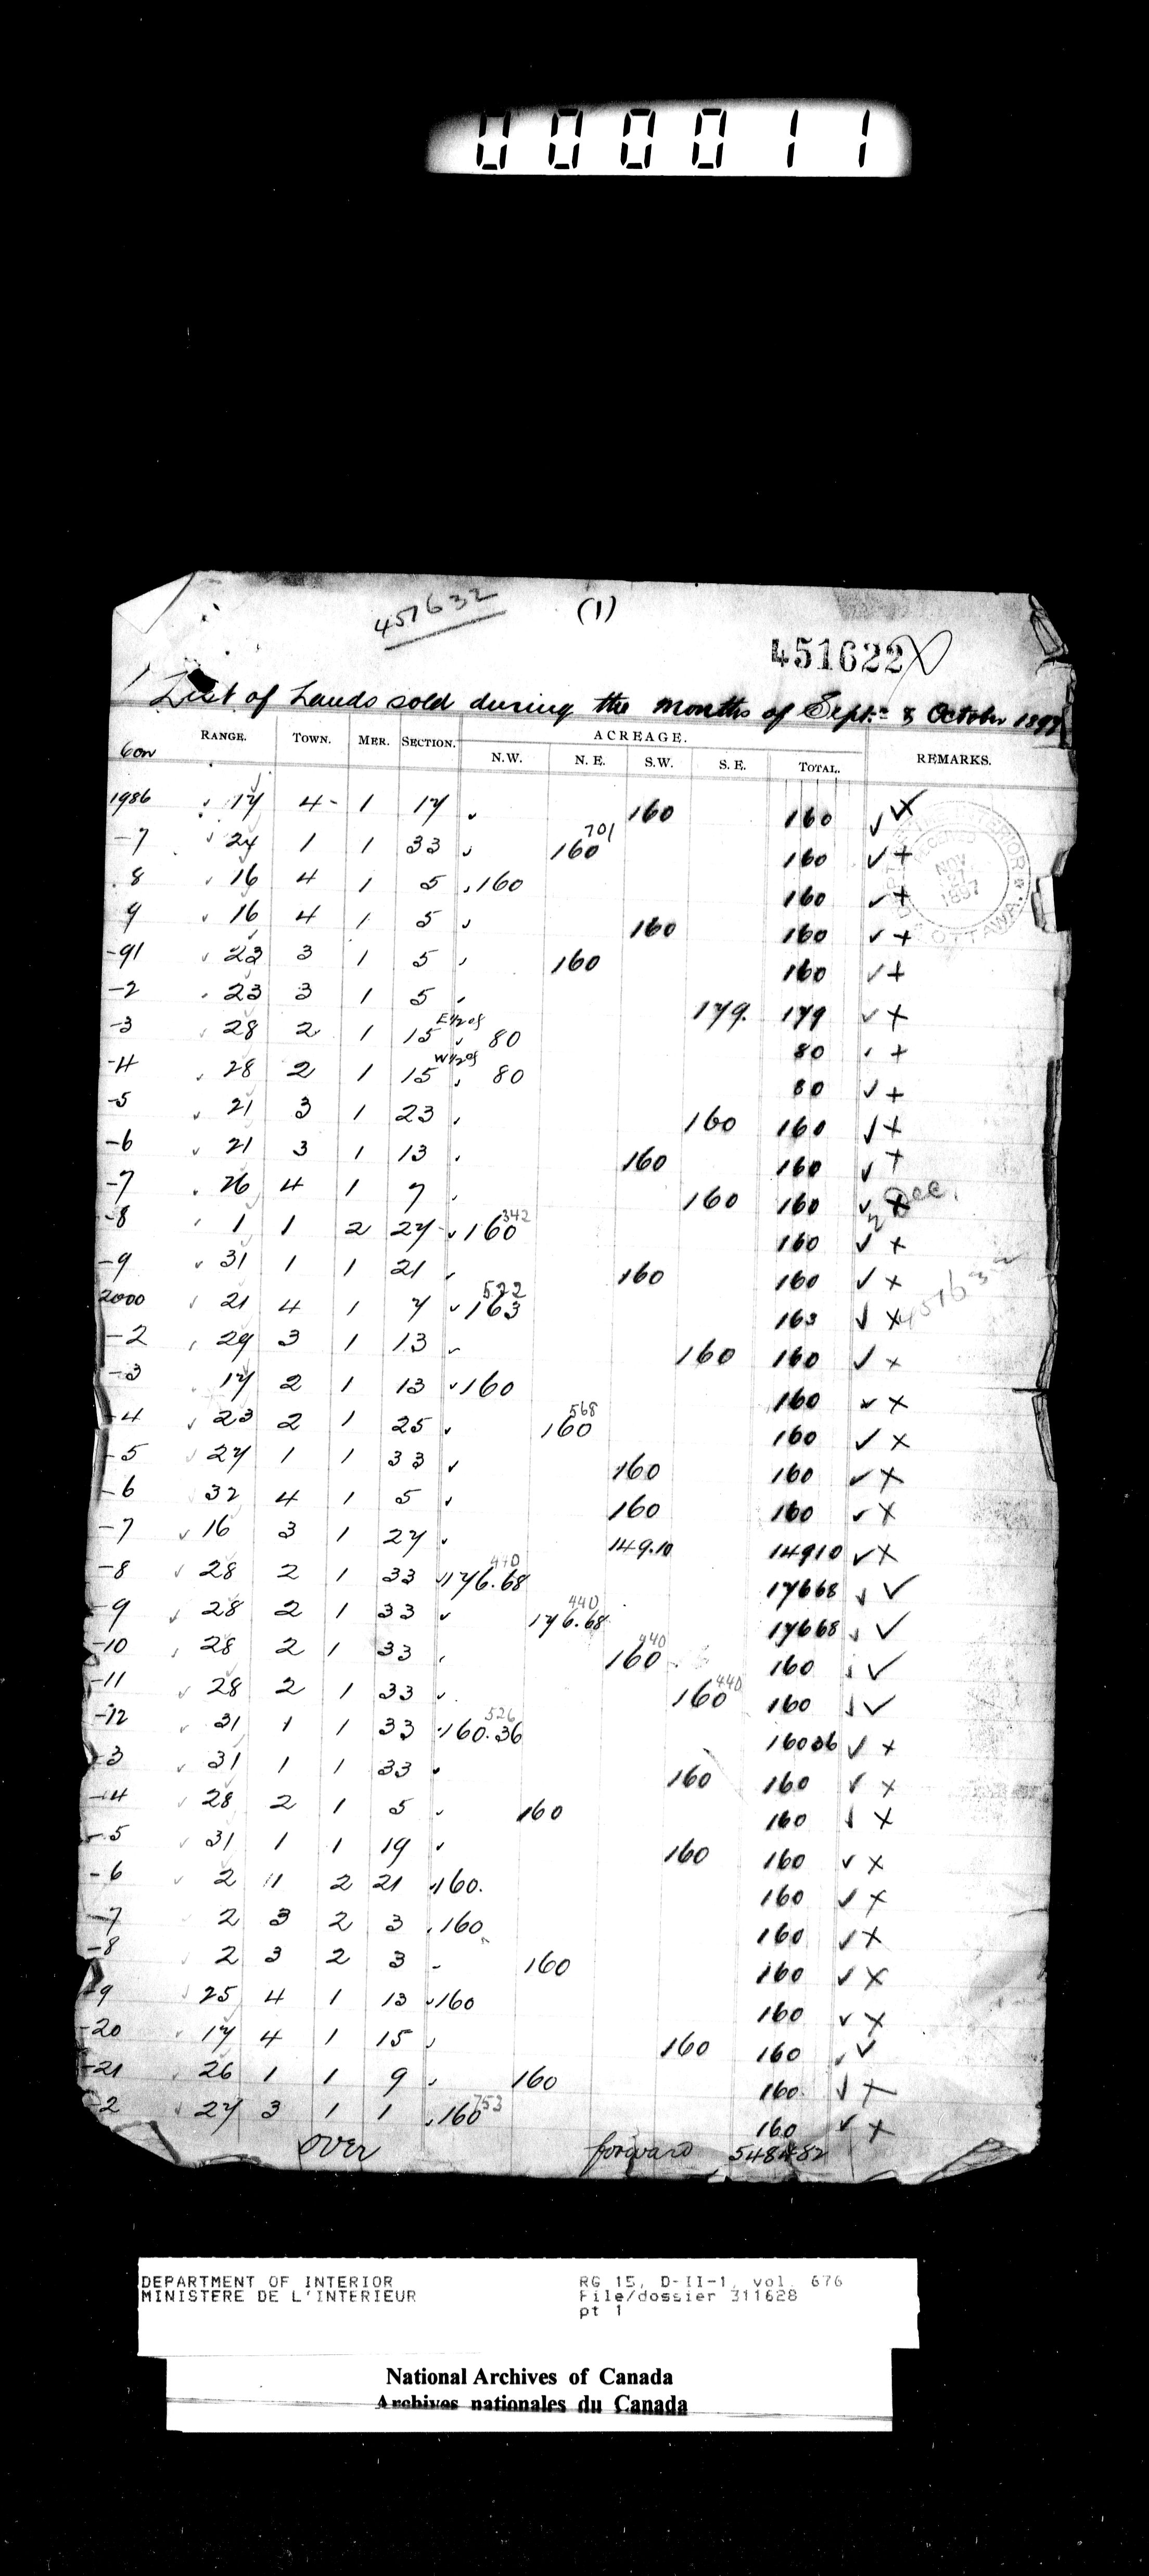 000011
451632
(1)
451622
List of Lands sold during the months of Sept. & October 1897
Con RANGE. TOWN. MER. SECTION. ACREAGE. REMARKS.
N.W. N.E. S.W. S.E. TOTAL.
1986 17 4 - 1 17 160 160
-7 27 1 1 33 160 701 160
8 16 4 1 5 160 160
9 16 4 1 5 160 160
-91 23 3 1 5 160 160
-2 23 3 1 5 179. 179
-3 28 2 1 15 E½ of 80 80
-4 28 2 1 15 W½ of 80 80
-5 21 3 1 23 160 160
-6 21 3 1 13 160 160
-7 26 4 1 7 160 160
-8 1 1 2 27 160 342 160
-9 31 1 1 21 160 160
2000 21 4 1 7 163 522 163
-2 29 3 1 13 160 160
-3 17 2 1 13 160 160
-4 23 2 1 25 160 568 160
-5 27 1 1 33 160 160
-6 32 4 1 5 160 160
-7 16 3 1 27 149.10 149 10
-8 28 2 1 33 176.68 440 176 68
-9 28 2 1 33 176.68 440 176 68
-10 28 2 1 33 160 440 160
-11 28 2 1 33 160 440 160
-12 31 1 1 33 160.36 526 160 36
-3 31 1 1 33 160 160
-4 28 2 1 5 160 160
-5 31 1 1 19 160 160
-6 2 11 2 21 160. 160
-7 2 3 2 3 160 160
-8 2 3 2 3 160 160
-9 25 4 1 13 160 160
-20 17 4 1 15 160 160
-21 26 1 1 9 160 160
-2 27 3 1 1 160 753 160
over forward 5484 82
RECEIVED
NOV
27
1897
OTTAWA.
Dec.
451632
DEPARTMENT OF INTERIOR
MINISTERE DE L'INTERIEUR
RG 15, D-II-1, vol. 676
File/dossier 311628
pt 1
National Archives of Canada
Archives nationales du Canada